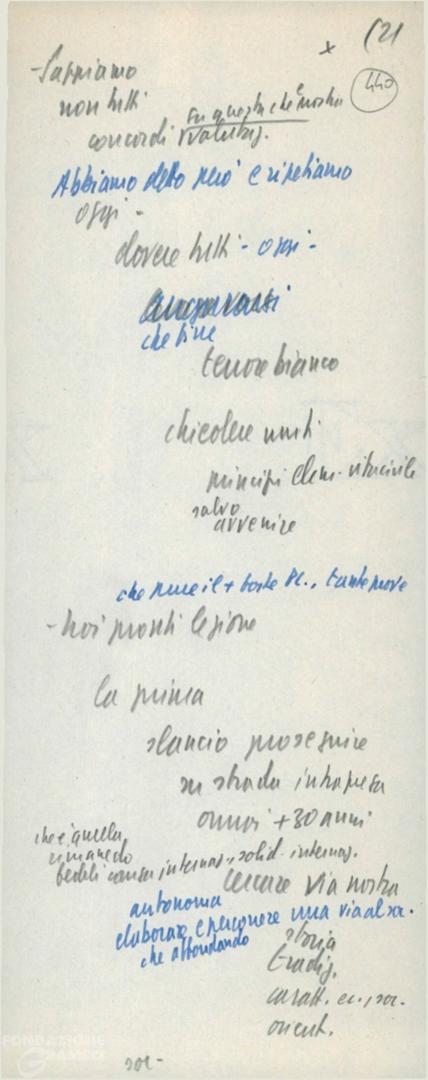 x (2)
440
- Sappiamo
non tutti
su questa che è nostra
concordi valutaz.
Abbiamo detto però e ripetiamo
oggi -
dovere tutti - oggi -
che fine
terrore bianco
chiedere uniti
principi elem. vita civile
salvo
avvenire
che pure il + forte PC., tante prove
- noi pronti lezione
la prima
slancio proseguire
su strada intrapresa
ormai + 30 anni
che è quella
rimanendo
fedeli causa internaz., solid. internaz.
cercare via nostra
autonoma
elaborare e percorrere una via al soc.
che affondando
storia
tradiz.
caratt. ec., soc.
orient.
soc -
FONDAZIONE
GRAMSCI